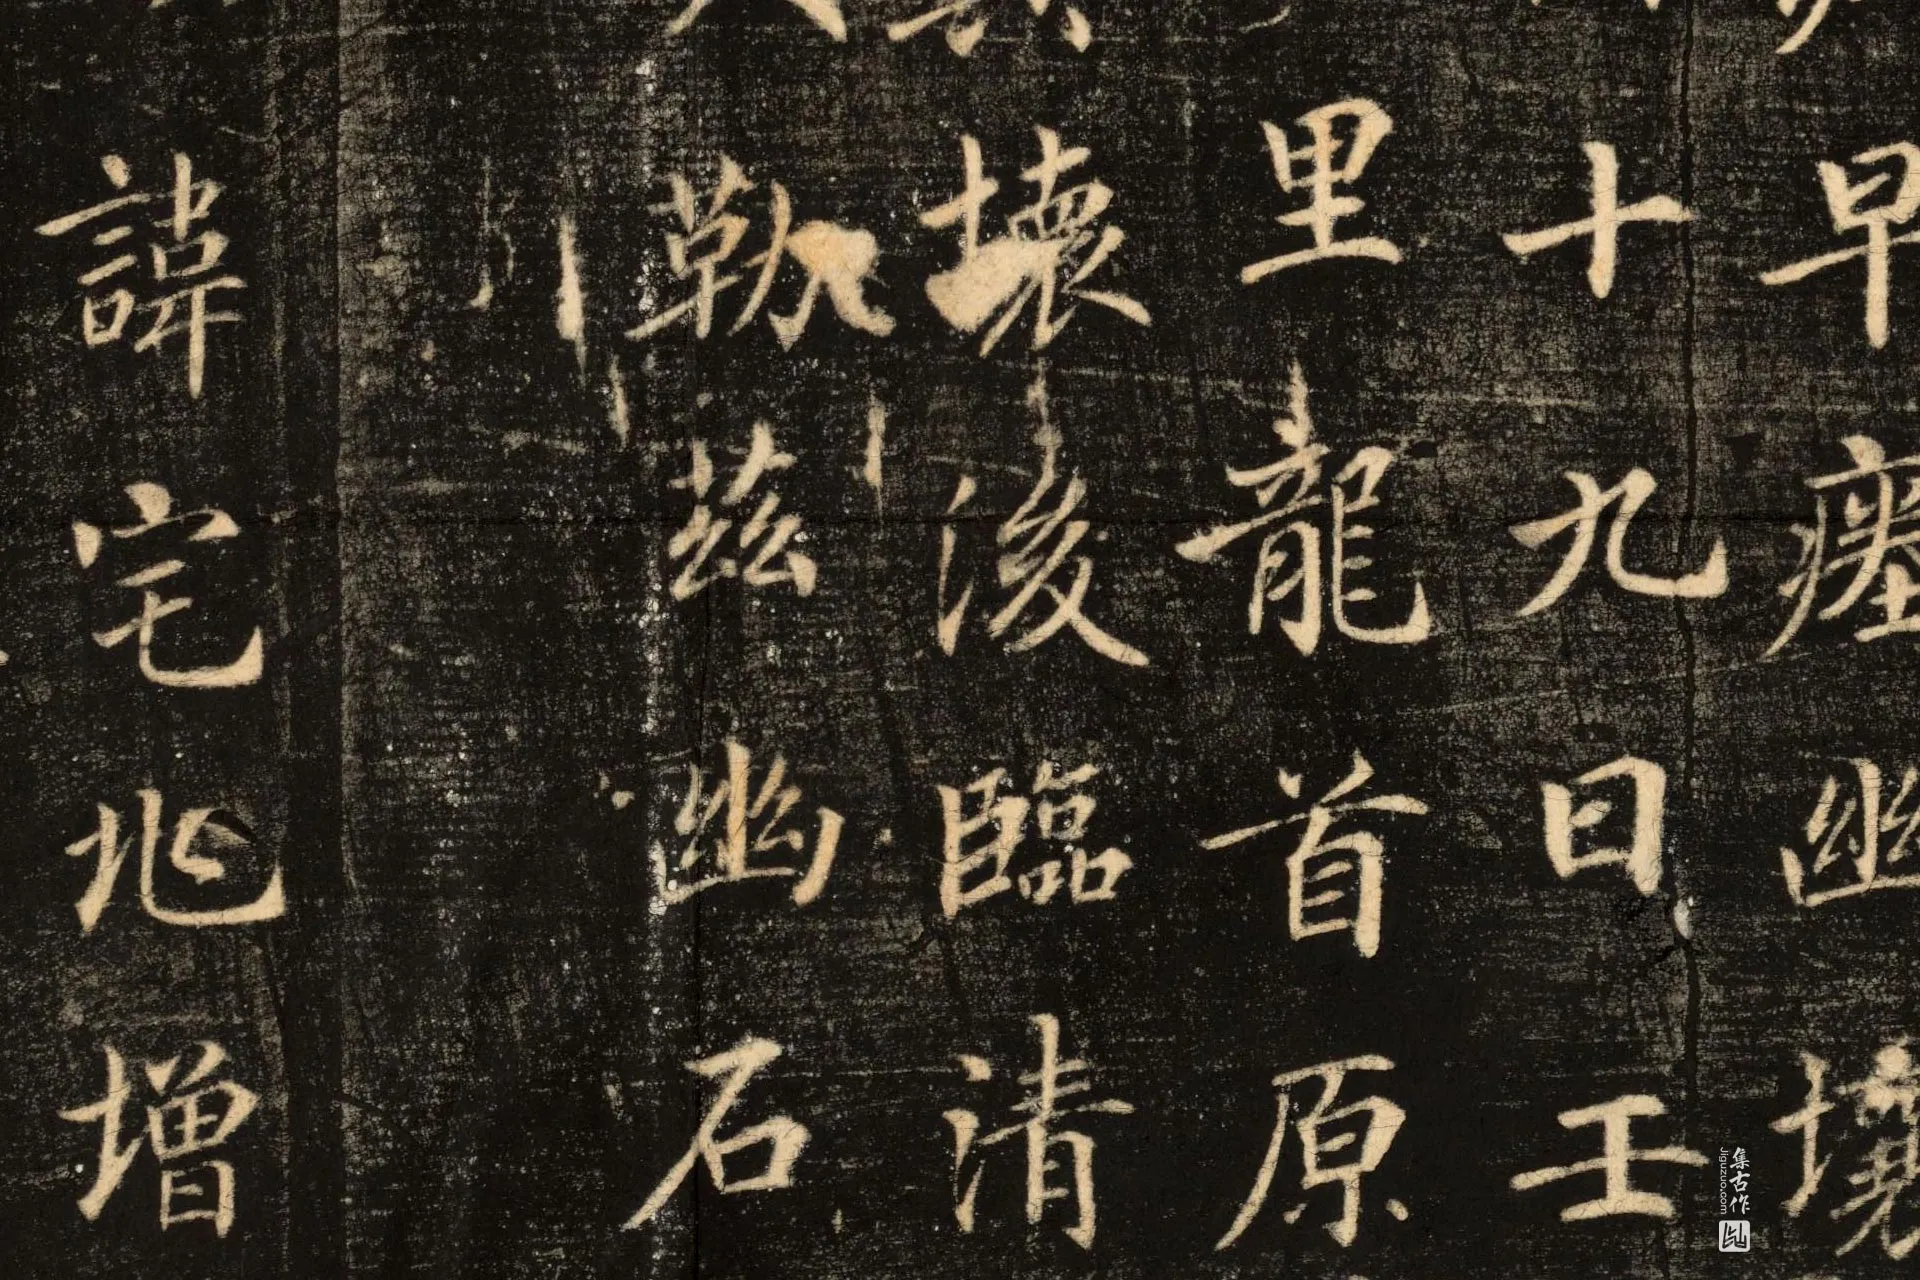 早瘞幽壤
十九日壬
里龍首原
壞後臨清
勒茲幽石
諱宅兆增
集古作
Jiguzuo.com